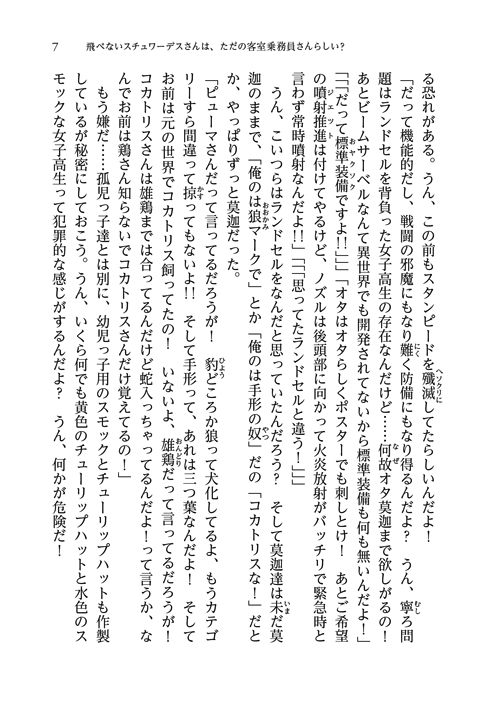 7　飛べないスチュワーデスさんは、ただの客室乗務員さんらしい？
る恐れがある。うん、この前もスタンピードを殲滅してたらしいんだよ！
「だって機能的だし、戦闘の邪魔にもなり難く防備にもなり得るんだよ？　うん、寧ろ問
題はランドセルを背負った女子高生の存在なんだけど……何故オタ莫迦まで欲しがるの！
あとビームサーベルなんて異世界でも開発されてないから標準装備も何も無いんだよ！」
「「「だって標準装備ですよ!!」」」「オタはオタらしくポスターでも刺しとけ！　あとご希望
の噴射推進は付けてやるけど、ノズルは後頭部に向かって火炎放射がバッチリで緊急時と
言わず常時噴射なんだよ!!」「「「思ってたランドセルと違う！」」」
　うん、こいつらはランドセルをなんだと思っていたんだろう？　そして莫迦達は未だ莫
迦のままで、「俺のは狼マークで」とか「俺のは手形の奴」だの「コカトリスな！」だと
か、やっぱりずっと莫迦だった。
「ピューマさんだって言ってるだろうが！　豹どころか狼って犬化してるよ、もうカテゴ
リーすら間違って掠ってもないよ!!　そして手形って、あれは三つ葉なんだよ！　そして
お前は元の世界でコカトリス飼ってたの！　いないよ、雄鶏だって言ってるだろうが！
コカトリスさんは雄鶏までは合ってるんだけど蛇入っちゃってるんだよ！って言うか、な
んでお前は鶏さん知らないでコカトリスさんだけ覚えてるの！」
　もう嫌だ……孤児っ子達とは別に、幼児っ子用のスモックとチューリップハットも作製
しているが秘密にしておこう。うん、いくら何でも黄色のチューリップハットと水色のス
モックな女子高生って犯罪的な感じがするんだよ？　うん、何かが危険だ！